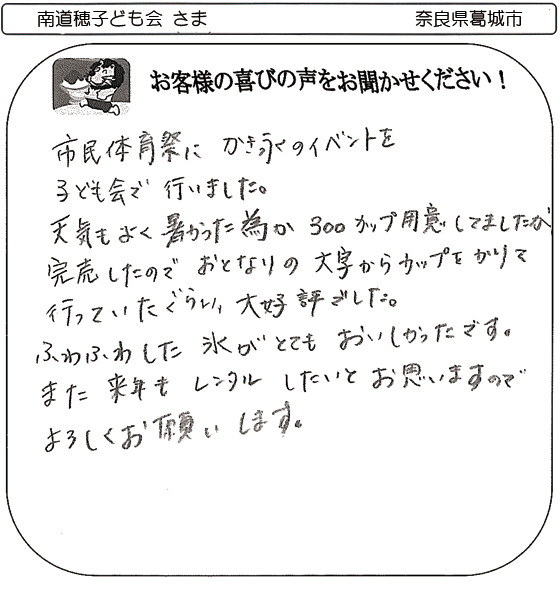 南道穂子ども会 さま
奈良県葛城市
お客様の喜びの声をお聞かせください！
市民体育祭に かき氷のイベントを
子ども会で 行いました。
天気もよく 暑かった為か 300カップ用意してましたが
完売したので おとなりの 大字からカップをかりて
行っていたぐらい 大好評でした。
ふわふわした 氷がとても おいしかったです。
また 来年も レンタル したいと お思いますので
よろしくお願いします。